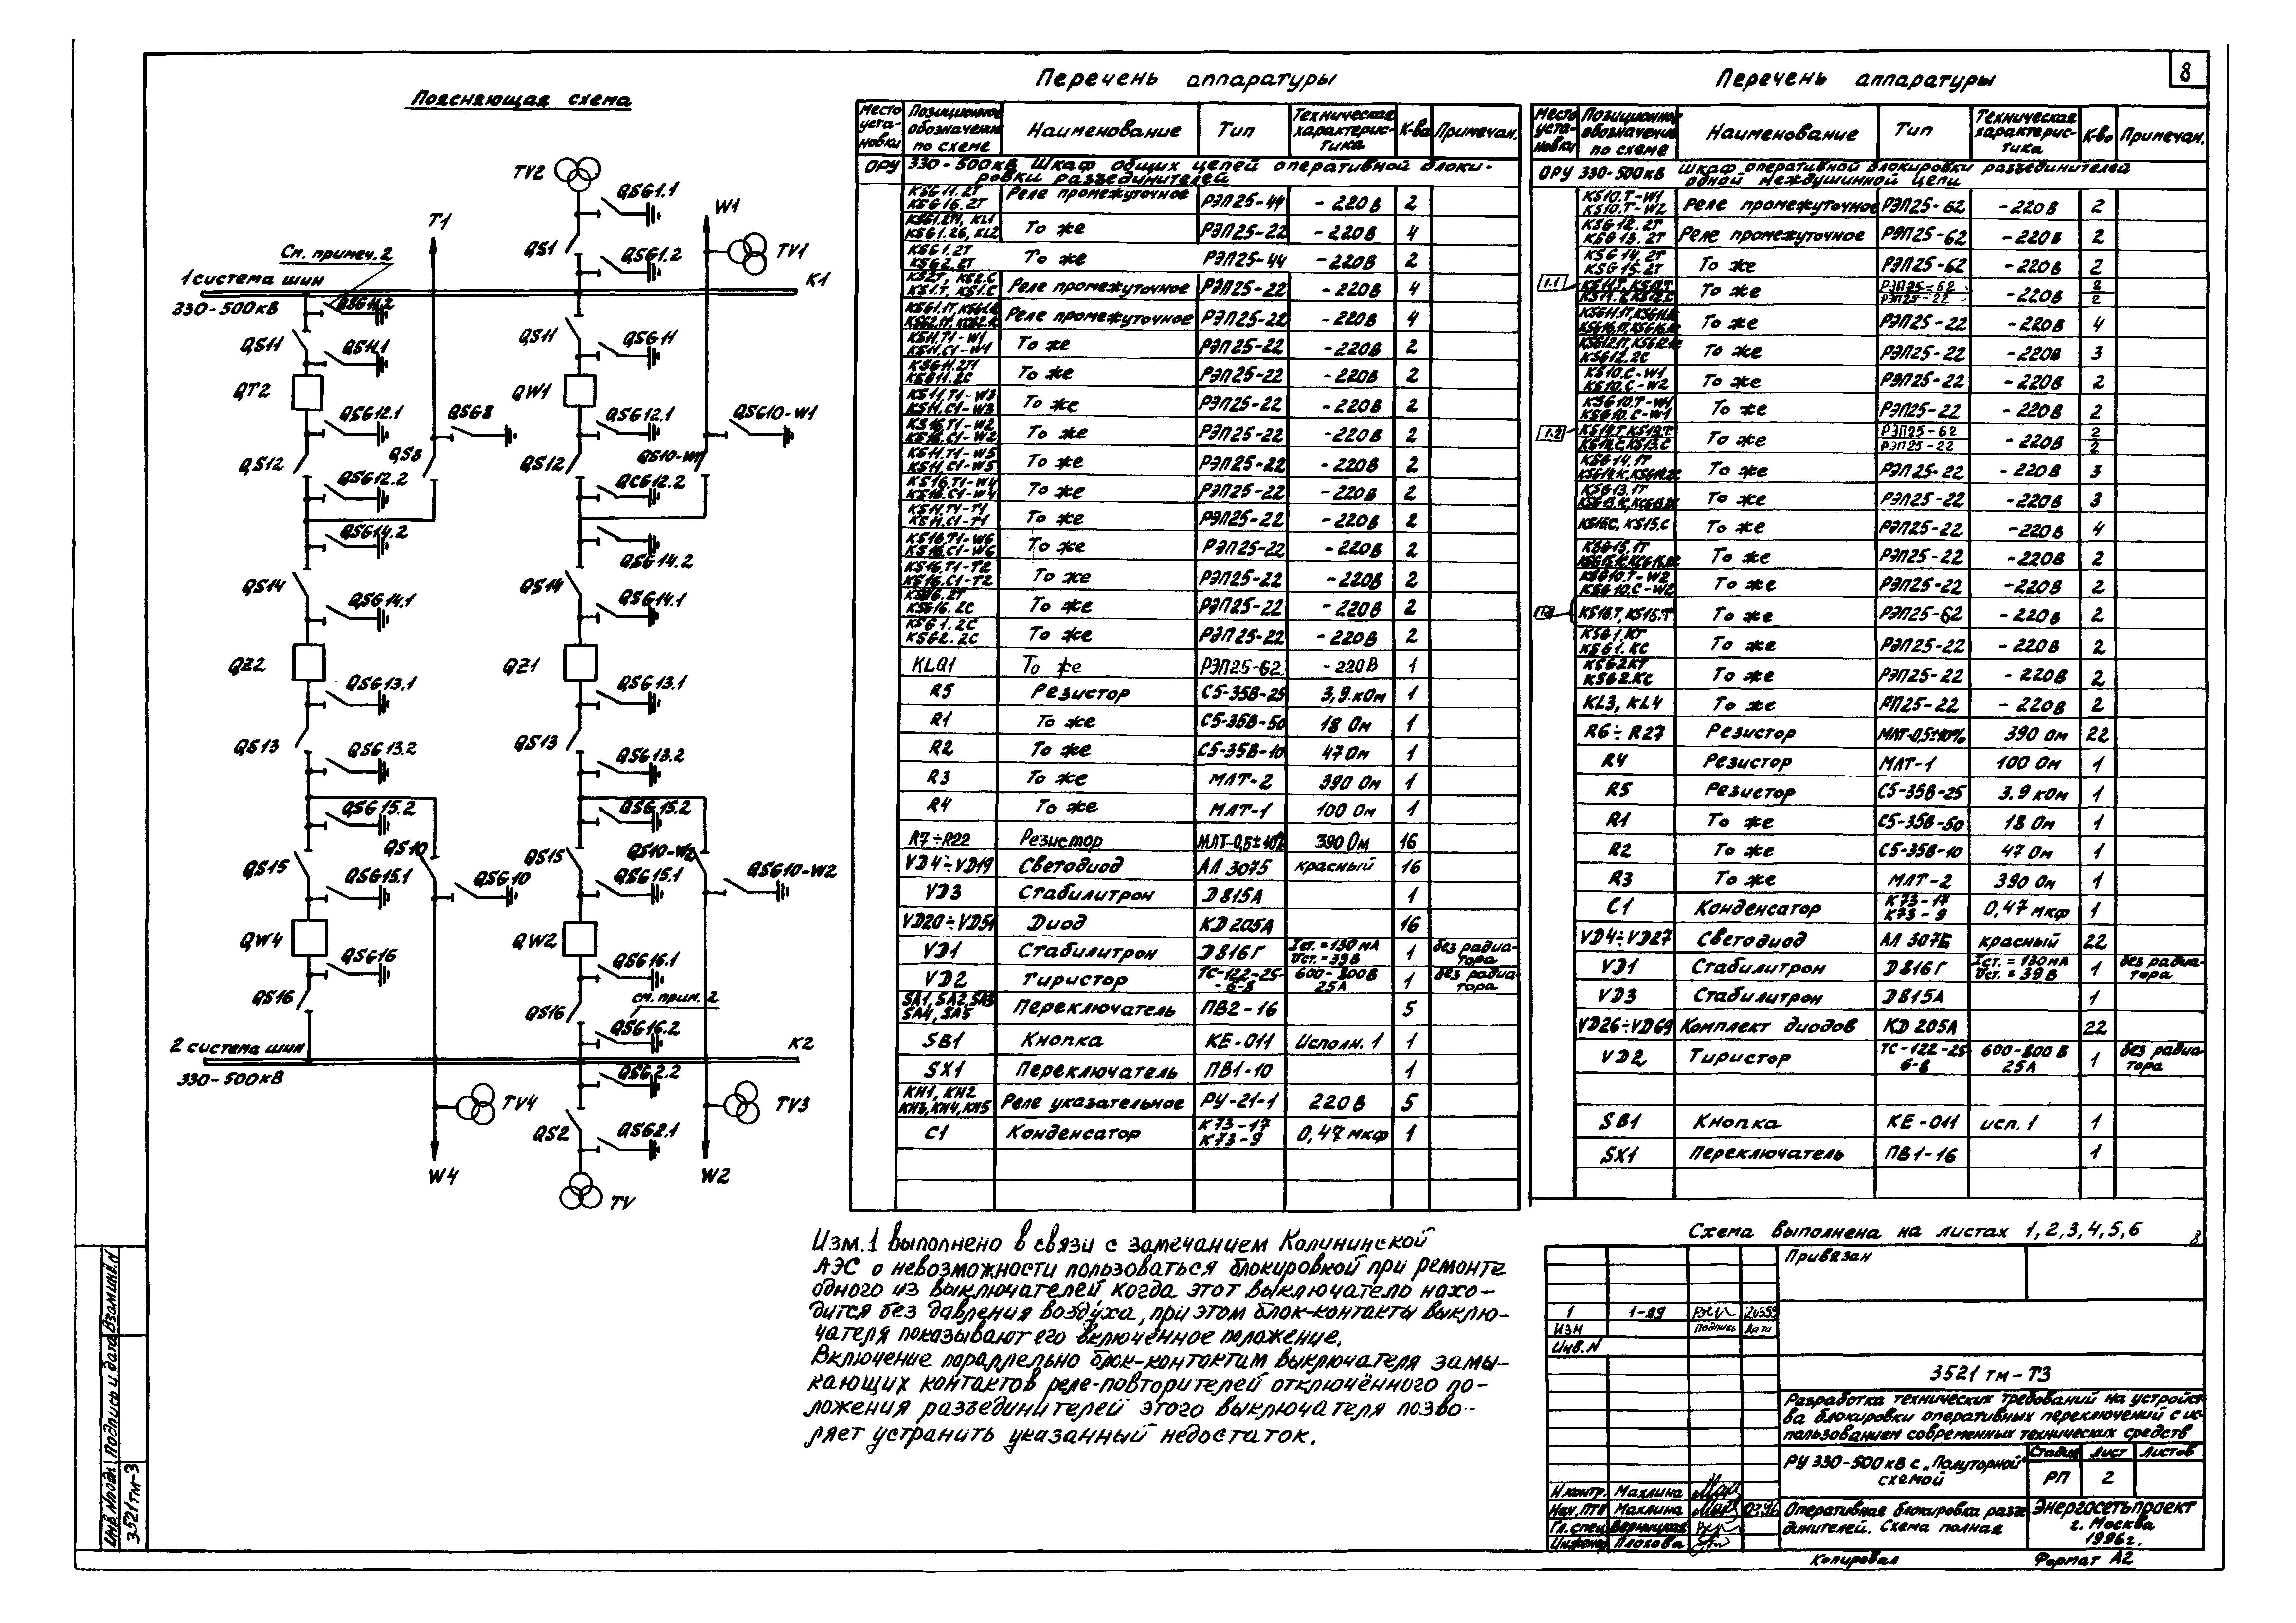 8
Поясняющая схема
TV2
QSG1.1
T1
W1
QS1
QSG1.2
TV1
См. примеч. 2
1 система шин
K1
330-500кВ
QSG11.2
QS11
QSG11.1
QS11
QSG11
QT2
QW1
QSG12.1
QSG8
QSG12.1
QSG10-W1
QS12
QS8
QS12
QS10-W1
QSG12.2
QCG12.2
QSG14.2
QSG14.2
QS14
QSG14.1
QS14
QSG14.1
QZ2
QZ1
QSG13.1
QSG13.1
QS13
QSG13.2
QS13
QSG13.2
QSG15.2
QSG15.2
QS15
QS10
QS15
QS10-W2
QSG15.1
QSG10
QSG15.1
QSG10-W2
QW4
QW2
QSG16
QSG16.1
QS16
QS16
см. прим. 2
QSG16.2
2 система шин
K2
330-500кВ
QSG2.2
TV4
TV3
QS2
QSG2.1
W4
W2
TV
Перечень аппаратуры
Место уста-новки
Позиционное обозначение по схеме
Наименование
Тип
Техническая характерис-тика
К-во
Примечан.
ОРУ 330-500кВ Шкаф общих цепей оперативной блоки-
ровки разъединителей
KSG11.2T KSG16.2T Реле промежуточное РЭП25-44 -220В 2
KSG1.2T1, KL1 KSG1.2G, KL2 То же РЭП25-22 -220В 4
KSG1.2T KSG2.2T То же РЭП25-44 -220В 2
KS2T, KS2.C KS1.T, KS1.C Реле промежуточное РЭП25-22 -220В 4
Реле промежуточное РЭП25-22 -220В 4
KS11.T1-W1 KS11.C1-W1 То же РЭП25-22 -220В 2
KSG11.2T1 KSG11.2C То же РЭП25-22 -220В 2
KS11.T1-W3 KS11.C1-W3 То же РЭП25-22 -220В 2
KS16.T1-W2 KS16.C1-W2 То же РЭП25-22 -220В 2
KS11.T1-W5 KS11.C1-W5 То же РЭП25-22 -220В 2
KS16.T1-W4 KS16.C1-W4 То же РЭП25-22 -220В 2
KS11.T1-T1 KS11.C1-T1 То же РЭП25-22 -220В 2
KS16.T1-W6 KS16.C1-W6 То же РЭП25-22 -220В 2
KS16.T1-T2 KS16.C1-T2 То же РЭП25-22 -220В 2
KSG16.2C То же РЭП25-22 -220В 2
KSG1.2C KSG2.2C То же РЭП25-22 -220В 2
KLQ1 То же РЭП25-62 -220В 1
R5 Резистор С5-35В-25 3,9 кОм 1
R1 То же С5-35В-50 18 Ом 1
R2 То же С5-35В-10 47 Ом 1
R3 То же МЛТ-2 390 Ом 1
R4 То же МЛТ-1 100 Ом 1
R7÷R22 Резистор МЛТ-0,5±10% 390 Ом 16
VD4÷VD19 Светодиод АЛ 307Б красный 16
VD3 Стабилитрон D815A 1
VD20÷VD51 Диод КД 205А 16
VD1 Стабилитрон D816Г Iст.=130 мА Uст.=39В 1 без радиа-тора
VD2 Тиристор ТС-122-25-6-8 600-800В 25А 1 без радиа-тора
SA1, SA2, SA3 SA4, SA5 Переключатель ПВ2-16 5
SB1 Кнопка КЕ-011 Исполн. 1 1
SX1 Переключатель ПВ1-10 1
КН1, КН2 КН3, КН4, КН5 Реле указательное РУ-21-1 220В 5
C1 Конденсатор К73-17 К73-9 0,47 мкф 1
Перечень аппаратуры
Место уста-новки
Позиционное обозначение по схеме
Наименование
Тип
Техническая характерис-тика
К-во
Примечан.
ОРУ 330-500кВ Шкаф оперативной блокировки разъединителей
одной междушинной цепи
KS10.T-W1 KS10.T-W2 Реле промежуточное РЭП25-62 -220В 2
KSG12.2T KSG13.2T Реле промежуточное РЭП25-62 -220В 2
KSG14.2T KSG15.2T То же РЭП25-62 -220В 2
1.1 То же РЭП25-62 РЭП25-22 -220В 2 2
То же РЭП25-22 -220В 4
KSG12.2C То же РЭП25-22 -220В 3
KS10.C-W1 KS10.C-W2 То же РЭП25-22 -220В 2
KSG10.T-W1 KSG10.C-W1 То же РЭП25-22 -220В 2
1.2 KS14.T, KS13.T KS14.C, KS13.C То же РЭП25-62 РЭП25-22 -220В 2 2
KSG14.1T То же РЭП25-22 -220В 3
KSG13.1T То же РЭП25-22 -220В 3
KS16C, KS15.C То же РЭП25-22 -220В 4
KSG15.1T То же РЭП25-22 -220В 2
KSG10.T-W2 KSG10.C-W2 То же РЭП25-22 -220В 2
1.3 KS16.T, KS15.T То же РЭП25-62 -220В 2
KSG1.KT KSG1.KC То же РЭП25-22 -220В 2
KSG2.KT KSG2.KC То же РЭП25-22 -220В 2
KL3, KL4 То же РП25-22 -220В 2
R6÷R27 Резистор МЛТ-0,5±10% 390 Ом 22
R4 Резистор МЛТ-1 100 Ом 1
R5 Резистор С5-35В-25 3.9 кОм 1
R1 То же С5-35В-50 18 Ом 1
R2 То же С5-35В-10 47 Ом 1
R3 То же МЛТ-2 390 Ом 1
C1 Конденсатор К73-17 К73-9 0,47 мкф 1
VD4÷VD27 Светодиод АЛ 307Б красный 22
VD1 Стабилитрон D816Г Iст.=130мА Uст.=39В 1 без радиа-тора
VD3 Стабилитрон D815A 1
VD26÷VD69 Комплект диодов КД 205А 22
VD2 Тиристор ТС-122-25-6-8 600-800 В 25А 1 без радиа-тора
SB1 Кнопка КЕ-011 исп. 1 1
SX1 Переключатель ПВ1-16 1
Изм.1 выполнено в связи с замечанием Калининской
АЭС о невозможности пользоваться блокировкой при ремонте
одного из выключателей когда этот выключатель нахо-
дится без давления воздуха, при этом блок-контакты выклю-
чателя показывают его включённое положение.
Включение параллельно блок-контактам выключателя замы-
кающих контактов реле-повторителей отключённого по-
ложения разъединителей этого выключателя позво-
ляет устранить указанный недостаток.
Схема выполнена на листах 1, 2, 3, 4, 5, 6
8
Привязан
1 1-99
ИЗМ Подпись Дата
Инв. N
3521 тм-Т3
Разработка технических требований на устройст-
ва блокировки оперативных переключений с ис-
пользованием современных технических средств
РУ 330-500 кВ с „Полуторной"
схемой
Стадия Лист Листов
РП 2
Н.контр. Махлина
Нач. ПТП Махлина
Гл. спец Верницкая
Инженер Плохова
Оперативная блокировка разъе-
динителей. Схема полная
Энергосетьпроект
г. Москва
1996г.
Копировал
Формат А2
Инв. N подл Подпись и дата Взам инв. N
3521тм-3